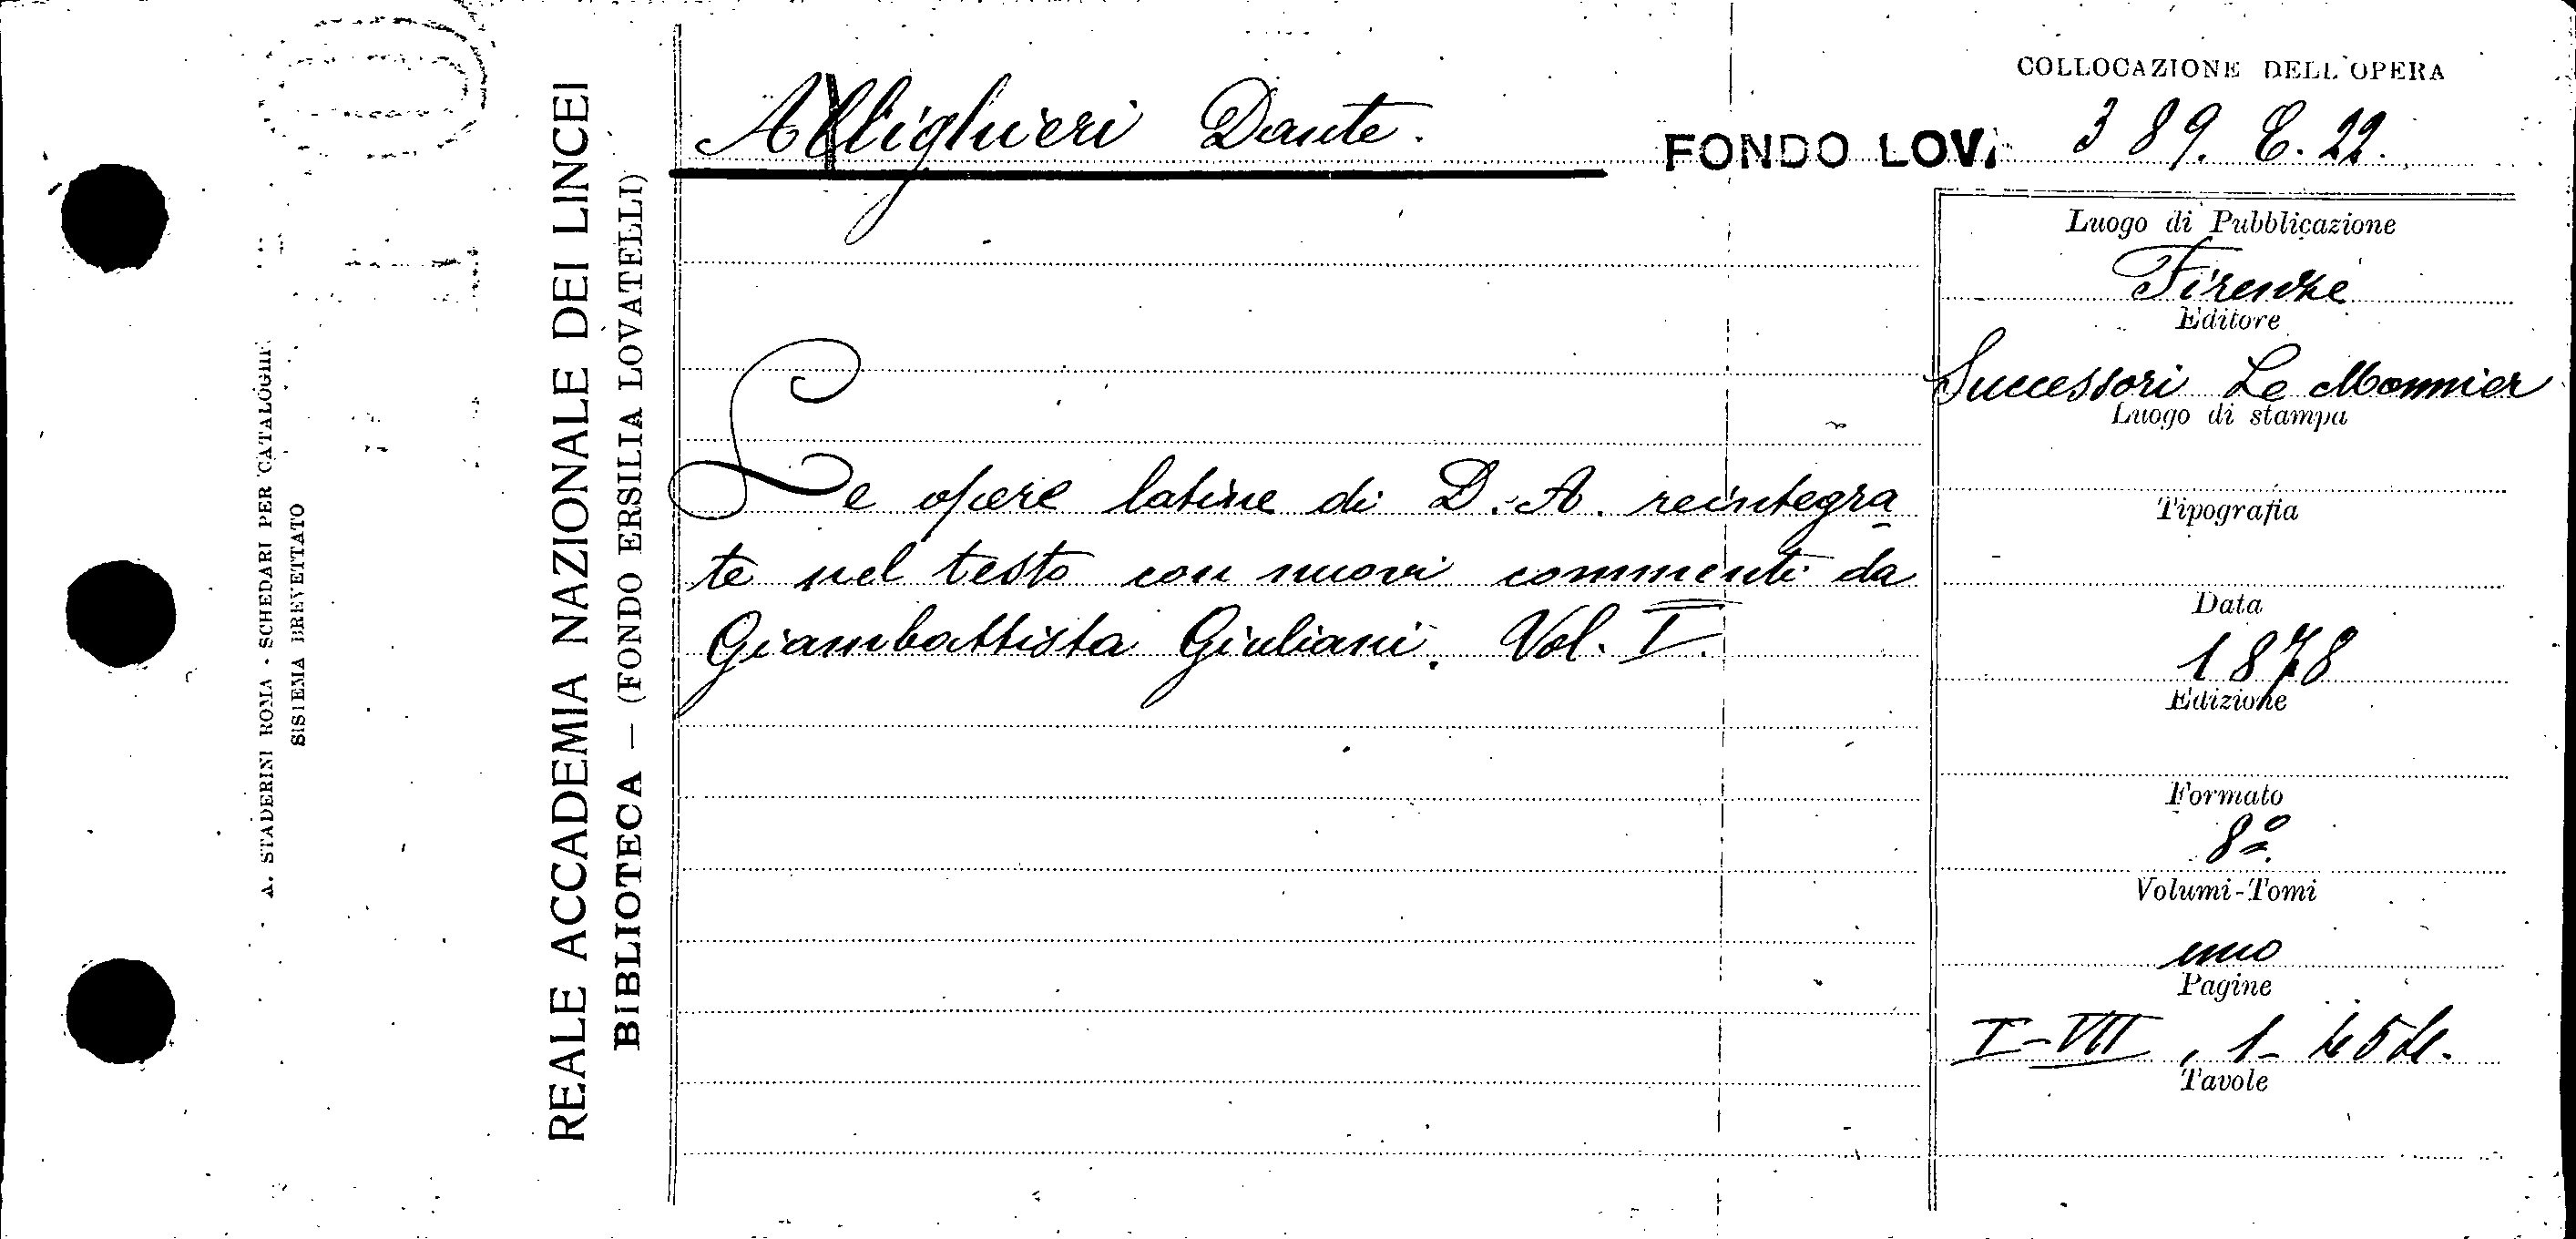 A. STADERINI ROMA - SCHEDARI PER CATALOGHI
SISTEMA BREVETTATO
REALE ACCADEMIA NAZIONALE DEI LINCEI
BIBLIOTECA — (FONDO ERSILIA LOVATELLI)
Allighieri Dante.
COLLOCAZIONE DELL'OPERA
FONDO LOV. 389. E. 22.
Le opere latine di D. A. reintegra-
te nel testo con nuovi commenti da
Giambattista Giuliani. Vol. I.
Luogo di Pubblicazione
Firenze
Editore
Successori Le Monnier
Luogo di stampa
Tipografia
Data
1878
Edizione
Formato
8º
Volumi-Tomi
uno
Pagine
I-VII, 1-454.
Tavole